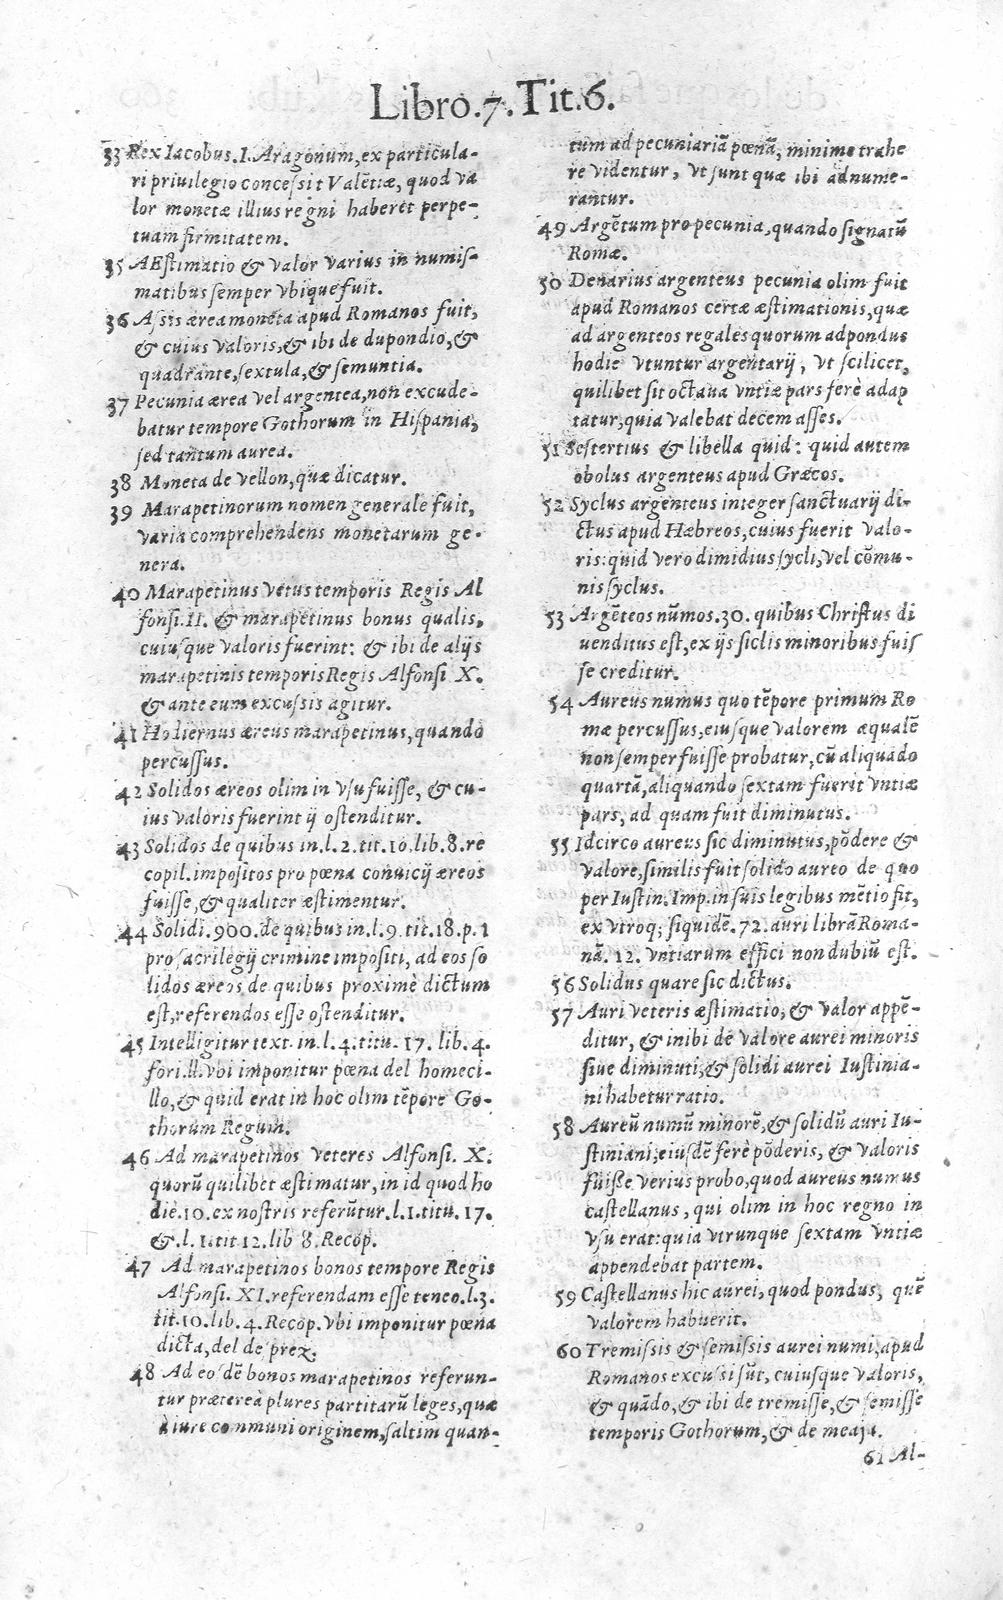 Libro.7.Tit.6.
33 Rex Iacobus.I.Aragonum,ex particula-
ri priuilegio concessit Valẽtiæ, quod va
lor monetæ illius regni haberet perpe-
tuam firmitatem.
35 AEstimatio & valor varius in numis-
matibus semper vbique fuit.
36 Assis ærea moneta apud Romanos fuit,
& cuius valoris,& ibi de dupondio,&
quadrante,sextula,& semuntia.
37 Pecunia ærea vel argentea,non excude-
batur tempore Gothorum in Hispania,
sed tantum aurea.
38 Moneta de vellon,quæ dicatur.
39 Marapetinorum nomen generale fuit,
varia comprehendens monetarum ge-
nera.
40 Marapetinus vetus temporis Regis Al
fonsi.II. & marapetinus bonus qualis,
cuiusque valoris fuerint: & ibi de alijs
marapetinis temporis Regis Alfonsi X.
& ante eum excussis agitur.
41 Hodiernus æreus marapetinus,quando
percussus.
42 Solidos æreos olim in vsu fuisse, & cu-
ius valoris fuerint ij ostenditur.
43 Solidos de quibus in.l.2.tit.10.lib.8.re
copil.impositos pro pœna convicij æreos
fuisse,& qualiter æstimentur.
44 Solidi.900.de quibus in.l.9.tit.18.p.1
pro sacrilegij crimine impositi, ad eos so
lidos æreos de quibus proximè dictum
est,referendos esse ostenditur.
45 Intelligitur text.in.l.4.titu.17. lib.4.
fori.ll.vbi imponitur pœna del homeci-
llo,& quid erat in hoc olim tẽpore Go-
thorum Regum.
46 Ad marapetinos veteres Alfonsi. X.
quorũ quilibet æstimatur,in id quod ho
die.10.ex nostris referũtur.l.1.titu.17.
&.l.1.tit 12.lib 8.Recop.
47 Ad marapetinos bonos tempore Regis
Alfonsi.XI.referendam esse teneo.l.3.
tit.10.lib.4.Recop.vbi imponitur pœna
dicta,del de prez.
48 Ad eosdẽ bonos marapetinos referun-
tur prætereà plures partitarũ leges,quæ
à iure communi originem,saltim quan-
tum ad pecuniariã pœnã, minime trahe
re videntur, vt sunt quæ ibi adnume-
rantur.
49 Argẽtum pro pecunia,quando signatũ
Romæ.
50 Denarius argenteus pecunia olim fuit
apud Romanos certæ æstimationis,quæ
ad argenteos regales quorum ad pondus
hodie vtuntur argentarij, vt scilicet,
quilibet sit octaua vntiæ pars ferè adap
tatur,quia valebat decem asses.
51 Sestertius & libella quid: quid autem
obolus argenteus apud Græcos.
52 Syclus argenteus integer sanctuarij di-
ctus apud Hæbreos,cuius fuerit valo-
ris:quid vero dimidius sycli,vel cõmu-
nis syclus.
53 Argẽteos nũmos.30. quibus Christus di
venditus est,ex ijs siclis minoribus fuis
se creditur.
54 Aureus numus quo tẽpore primum Ro
mæ percussus,eiusque valorem æqualẽ
non semper fuisse probatur,cũ aliquado
quartã,aliquando sextam fuerit vntiæ
pars, ad quam fuit diminutus.
55 Idcirco aureus sic diminutus,põdere &
valore,similis fuit solido aureo de quo
per Iustin.Imp.in suis legibus mẽtio fit,
ex vtroq; siquidẽ.72.auri librã Roma-
nã.12. vntiarum effici non dubiũ est.
56 Solidus quare sic dictus.
57 Auri veteris æstimatio,& valor appẽ-
ditur, & inibi de valore aurei minoris
siue diminuti,& solidi aurei Iustinia-
ni habetur ratio.
58 Aureũ numũ minorẽ,& solidũ auri Iu-
stiniani,eiusdẽ ferè põderis, & valoris
fuisse verius probo,quod aureus numus
castellanus, qui olim in hoc regno in
vsu erat:quia vtrunque sextam vntiæ
appendebat partem.
59 Castellanus hic aurei,quod pondus, quẽ
valorem habuerit.
60 Tremissis & semissis aurei numi,apud
Romanos excussi sũt, cuiusque valoris,
& quãdo,& ibi de tremisse,& semisse
temporis Gothorum,& de meaja.
61 Al-